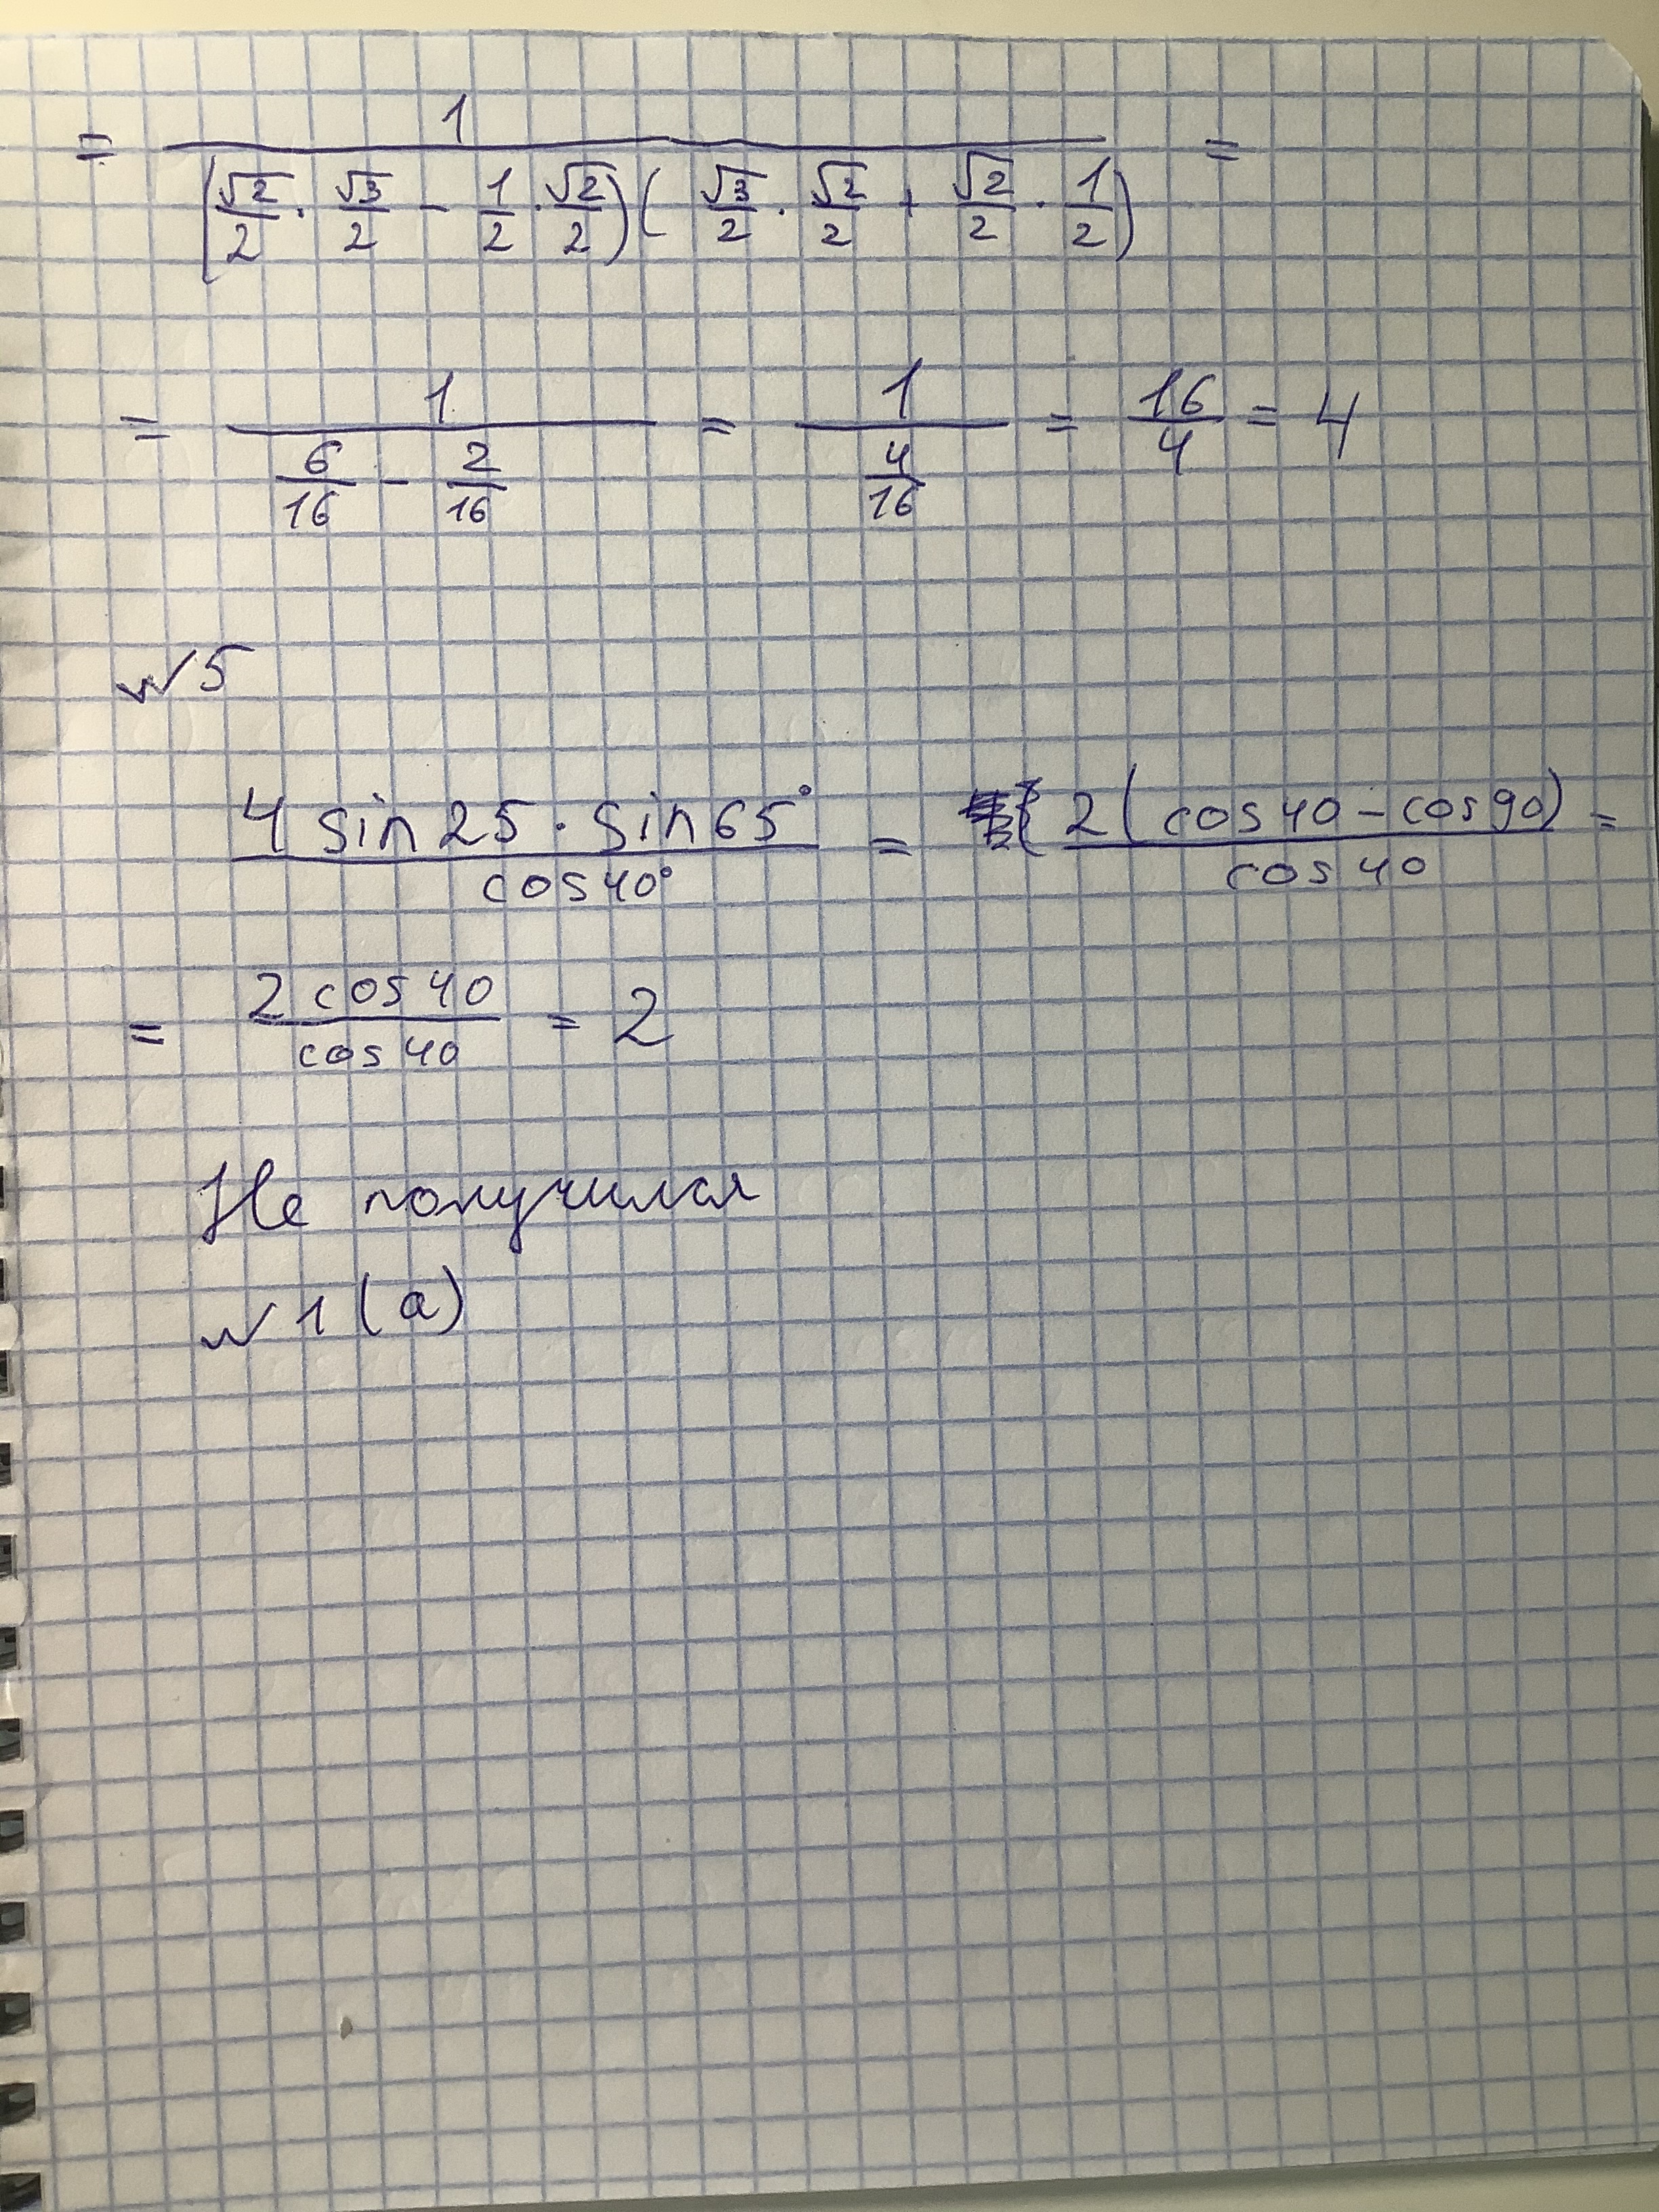 = 1 / ((√2/2 · √3/2 - 1/2 · √2/2)(√3/2 · √2/2 + √2/2 · 1/2)) =
= 1 / (6/16 - 2/16) = 1 / (4/16) = 16/4 = 4
№5
4 sin 25 · sin 65° / cos 40° = 2(cos 40 - cos 90) / cos 40 =
= 2 cos 40 / cos 40 = 2
Не получился
№1 (а)